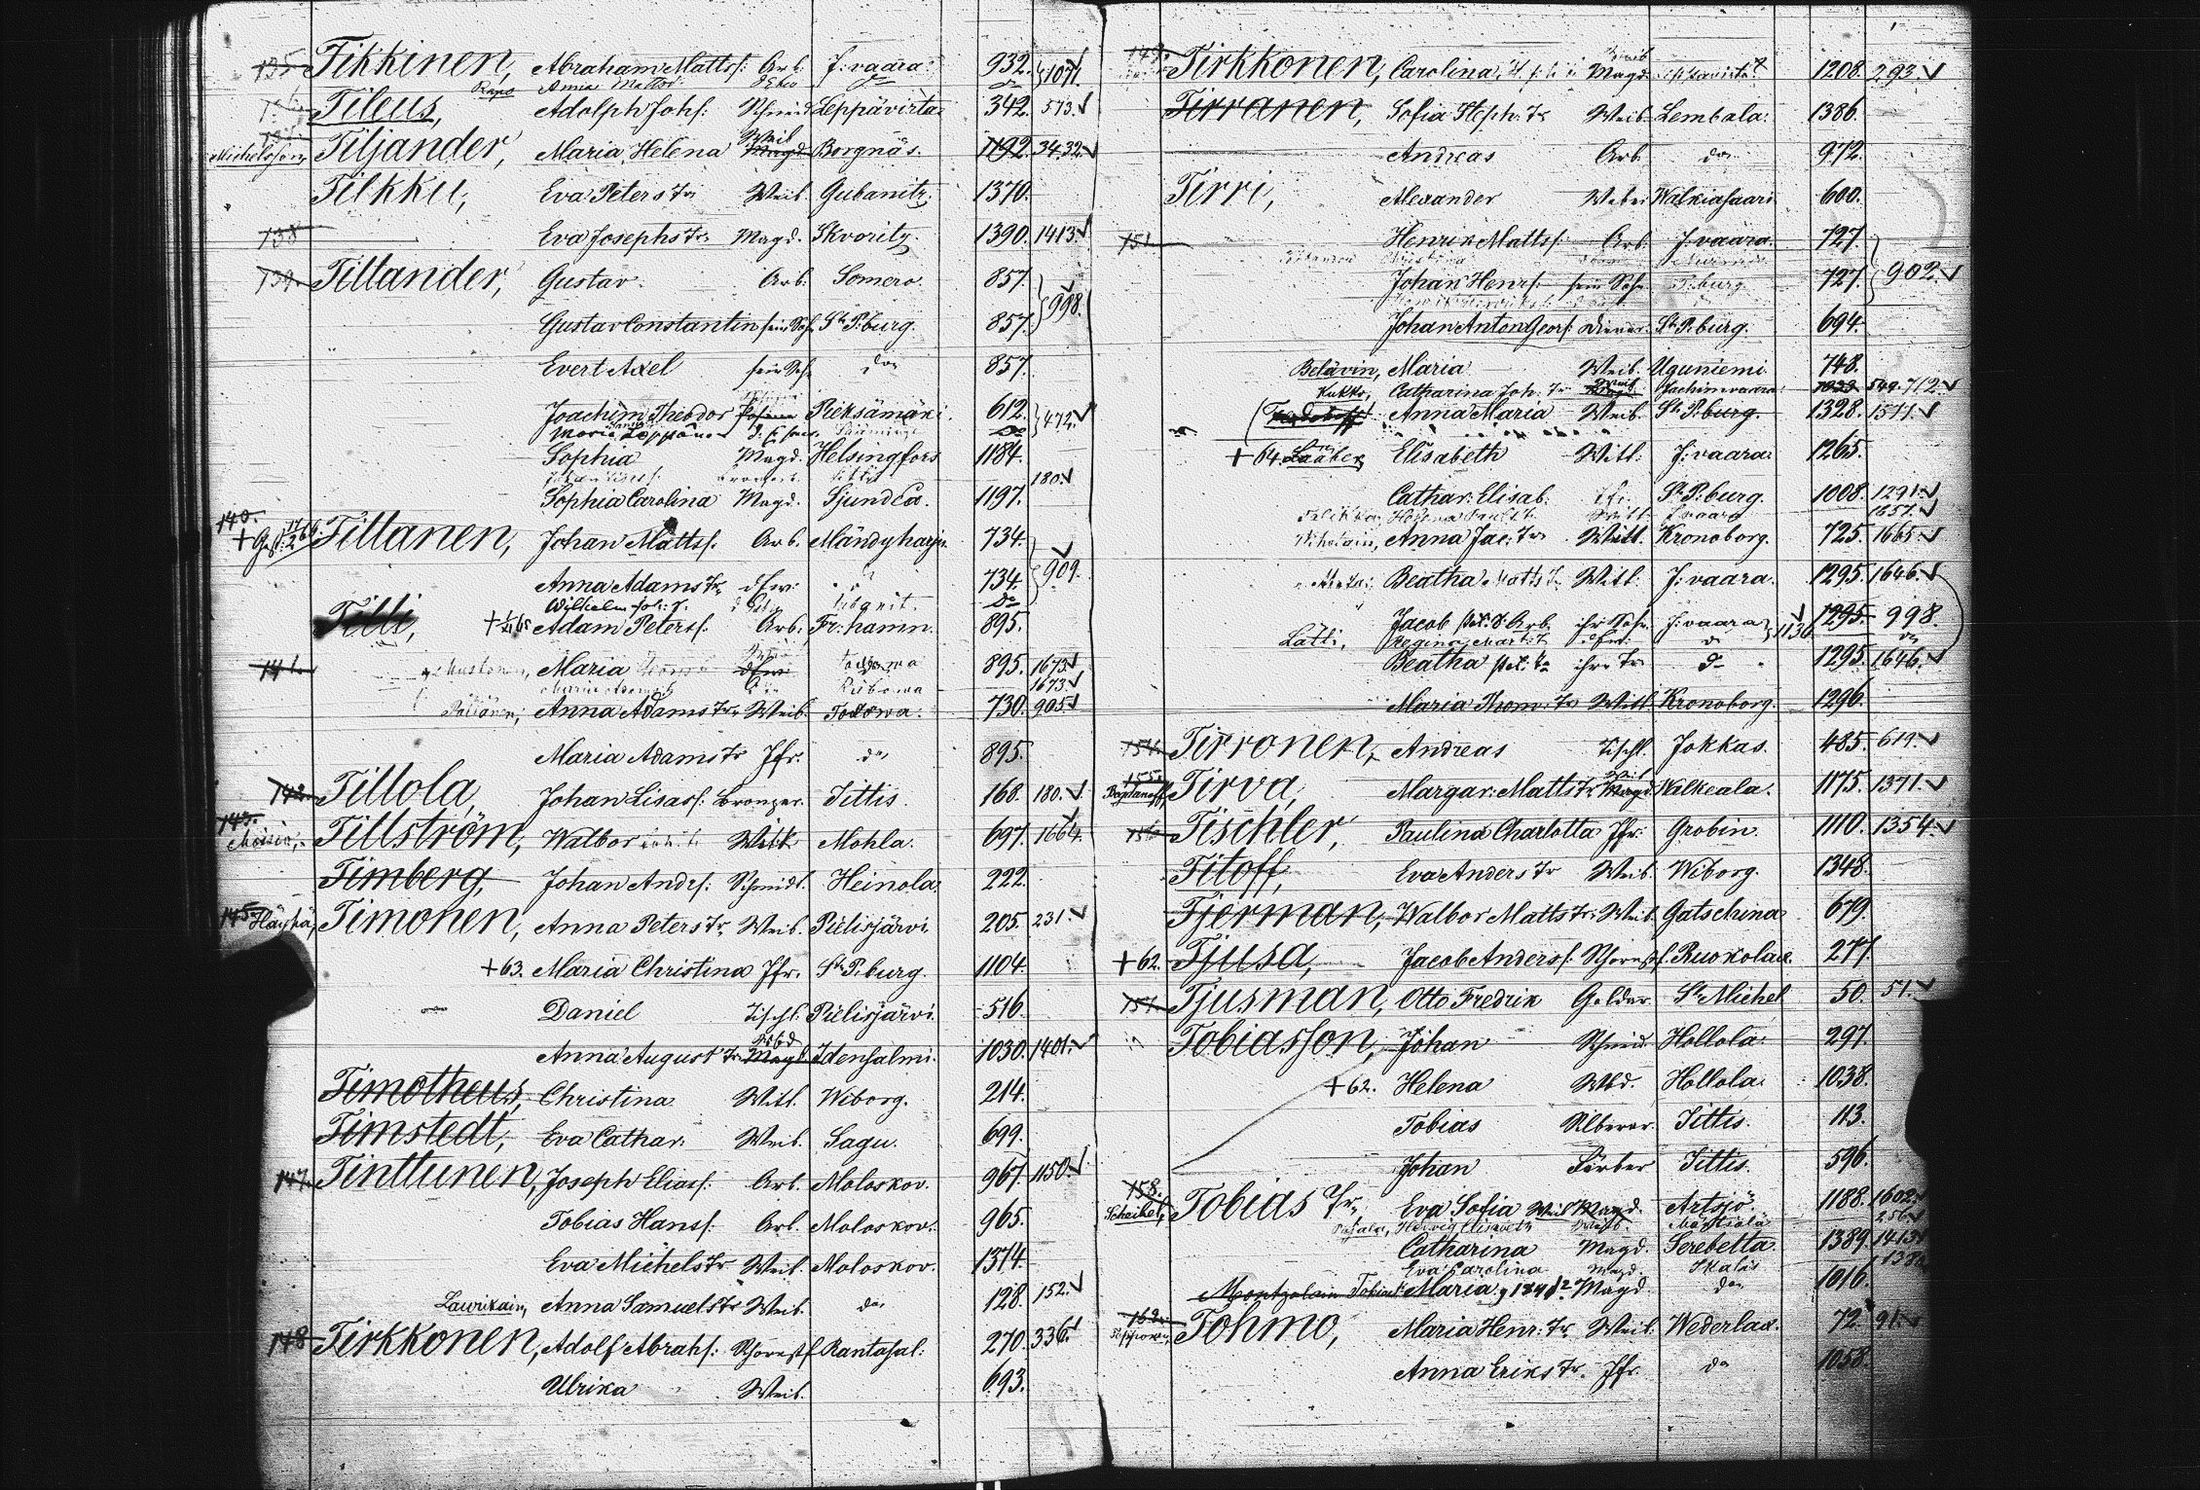 135. Tikkinen, Abraham Mattss: Arb. J:vaara. 932. 1071.
Raps Anna Matts: do
Tileus, Adolph Johs: Schneid Leppävirta. 342. 573. ✓
Michelsson Tiljander, Maria Helena Weib Magd. Borgnäs. 1192. 3432. ✓
Tilkku, Eva Peters Tr. Weib. Gubanitz. 1370.
138 Eva Josephs Tr. Magd. Skvoritz. 1390. 1413. ✓
139. Tillander, Gustav. Arb. Somero. 857.
998.
Gustav Constantin sein Sohn St. P.burg. 857.
Evert Axel sein Sohn do 857.
Joachim Theodor Pieksämäki. 612. 472. ✓
Maria Leppänen do
Sophia Magd. Helsingfors 1184.
180. ✓
Sophia Carolina Magd. Sjundea. 1197.
140. + Tillanen, Johan Mattss. Arb. Mändyharju. 734.
909.
Anna Adams Tr. d Frn: 734.
Wilhelm Joh: S. do
Tilli, + 65 Adam Peterss. Arb. Fr:hamn. 895.
141. Maria 895. 1673. ✓
1673. ✓
Anna Adams Tr. Weib. Toxowa. 730. 905. ✓
Maria Adams Tr. Jfr. do 895.
142. Tillola, Johan Lisass: Bronzer. Iittis. 168. 180. ✓
143. Tillström, Walbor Witt. Mohla. 697. 1664.
Timberg, Johan Andrs: Schmidt. Heinola. 222.
145 Häyhä, Timonen, Anna Peters Tr. Weib. Pielisjärvi 205. 231. ✓
+ 63. Maria Christina Jfr. St. P.burg. 1104.
Daniel Tischl. Pielisjärvi. 516.
Anna August Tr. Magd. Idensalmi. 1030. 1401. ✓
Timotheus, Christina Witt. Wiborg. 214.
Timstedt, Eva Cathar. Weib. Sagu. 699.
147. Tinttunen, Joseph Eliass: Arb. Moloskov. 967. 1150. ✓
Tobias Hanss: Arb. Moloskov. 965.
Eva Michels Tr. Weib. Moloskov. 1374.
Laurikain, Anna Samuels Tr. Weib. do 128. 152. ✓
148 Tirkkonen, Adolf Abrahs: Schornstf. Rantasal: 270. 336.
Ulrika Weib. 693.
149. Tirkkonen, Carolina Weib Magd. 1208. 293. ✓
Tirranen, Sofia Steph. Tr. Weib. Lembala: 1386.
Andreas Arb. do 972.
Tirri, Alexander Weber Walkiasaari. 600.
151. Henrik Mattss: Arb. J:vaara. 727.
902. ✓
Johan Henrs: sein Sohn P.burg. 727.
Johan Anton Georg: Diener. St. P.burg. 694.
Belävin, Maria Weib. Uguniemi. 748.
Kukko, Catharina Joh. Tr. Weib Jochimvaara. 549. 712. ✓
Anna Maria Weib. St. P.burg. 1328. 1511. ✓
+ 64. Laaber, Elisabeth Witt: J:vaara: 1265.
Cathar: Elisab. Jfr. St. P.burg. 1008. 1291. ✓
1657. ✓
Anna Jac. Tr. Witt. Kronoborg. 725. 1665. ✓
Beatha Matts Tr. Witt: J:vaara. 1295. 1646. ✓
Jacob Arb. ihr Sohn. J:vaara. 1136 1295. 998.
Lätti, Regina Mart. Tr. do
Beatha ihre Tr. do 1295. 1646. ✓
Maria Thom: Tr. Witt. Kronoborg. 1296.
154. Tirronen, Andreas Tischl. Jokkas. 485. 619. ✓
155. Bogdanoff Tirva, Margar: Matts Tr. Magd. Walkeala. 1175. 1371. ✓
156 Tischler, Paulina Charlotta Jfr. Grobin. 1110. 1354. ✓
Titoff, Eva Anders Tr. Weib. Wiborg. 1348.
Tjerman, Walbor Matts Tr. Weib. Gatschina. 679.
+ 62. Tjusa, Jacob Anderss: Schornstf. Ruokolax. 277.
157. Tjusman, Otto Fredrik Goldar. St. Michel 50. 51. ✓
Tobiasson, Johan Schneid. Hollola: 297.
+ 62. Helena Wbd. Hollola: 1038.
Tobias Silberar. Iittis. 113.
Johan Färber Iittis. 596.
158. Tobias Tr. Eva Sofia Weib Magd. Artsjö. 1188. 1602.
Hedwig Elisabeth 256. ✓
Catharina Magd. Serebetta. 1389. 1413.
Eva Carolina Magd. 1380
Maria Magd. do 1016.
162. Tohmo, Maria Henr: Tr. Weib. Wederlax. 72. 91. ✓
Anna Eriks Tr. Jfr. do 1058.